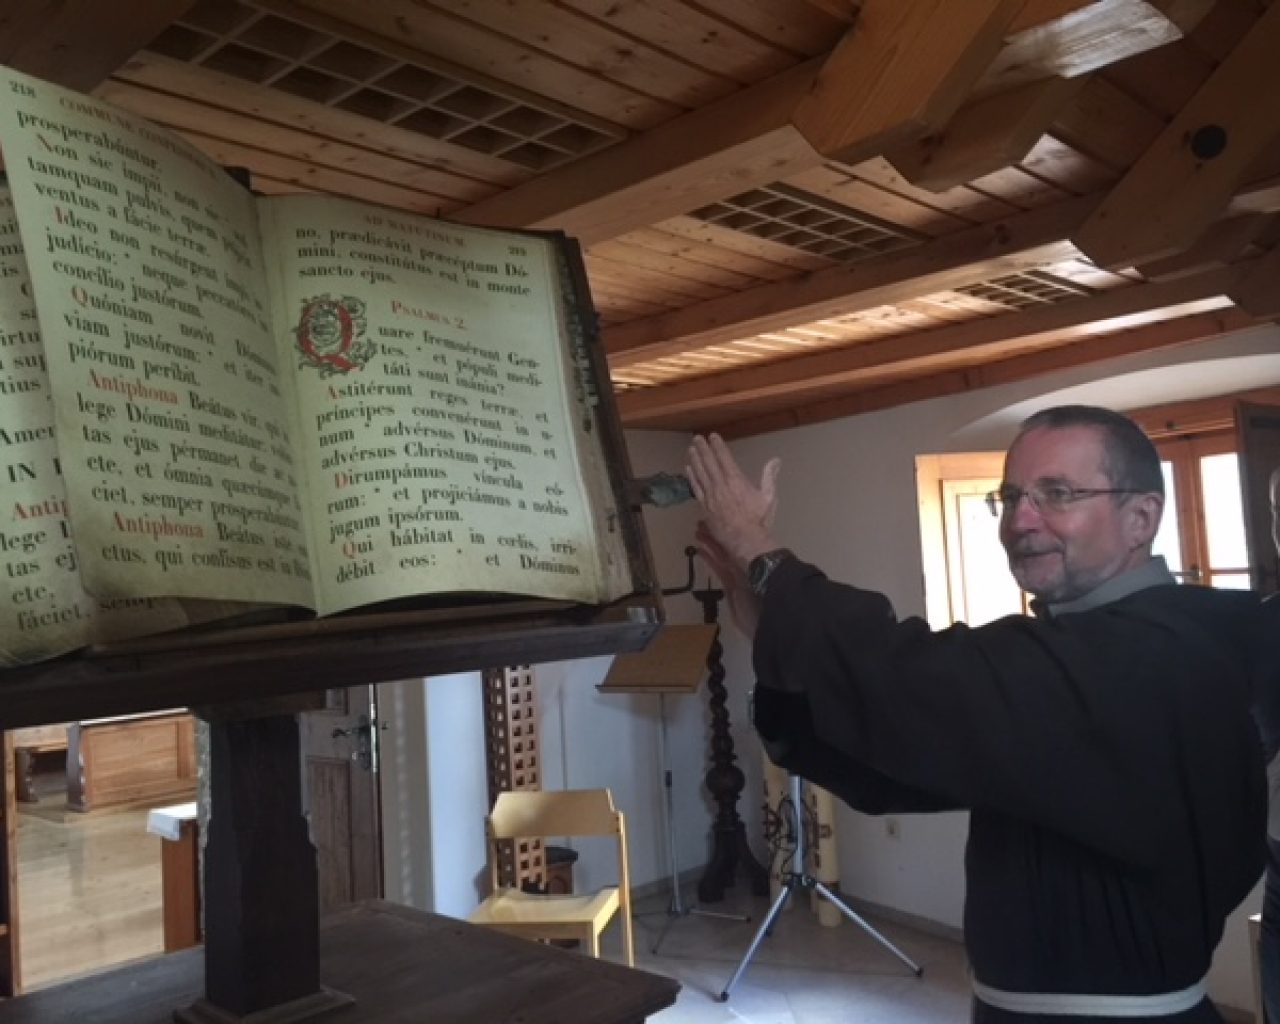 218 COMMUNE CONFESSORIS
prosperabúntur.
Non sic impii, non sic: * sed
tamquam pulvis, quem prójicit
ventus a fácie terræ.
Ideo non resúrgent impii in
judício: * neque peccatóres in
concílio justórum.
Quóniam novit Dóminus
viam justórum: * et iter im-
piórum períbit.
Antiphona Beátus vir, qui in
lege Dómini meditátur, volún-
tas ejus pérmanet die ac
cte, et ómnia quæcúmque
ciet, semper prosperabúntur.
Antiphona Beátus iste
ctus, qui confísus est in
AD MATUTINUM. 219
no, prædicávit præcéptum Dó-
mini, constitútus est in monte
sancto ejus.
PSALMUS 2.
Quare fremuérunt Gen-
tes, * et pópuli medi-
táti sunt inánia?
Astitérunt reges terræ, et
príncipes convenérunt in u-
num * advérsus Dóminum, et
advérsus Christum ejus.
Dirumpámus víncula eó-
rum: * et projiciámus a nobis
jugum ipsórum.
Qui hábitat in cœlis, irri-
débit eos: * et Dóminus
IN
lege
tas ej
cte,
fáciet, semp